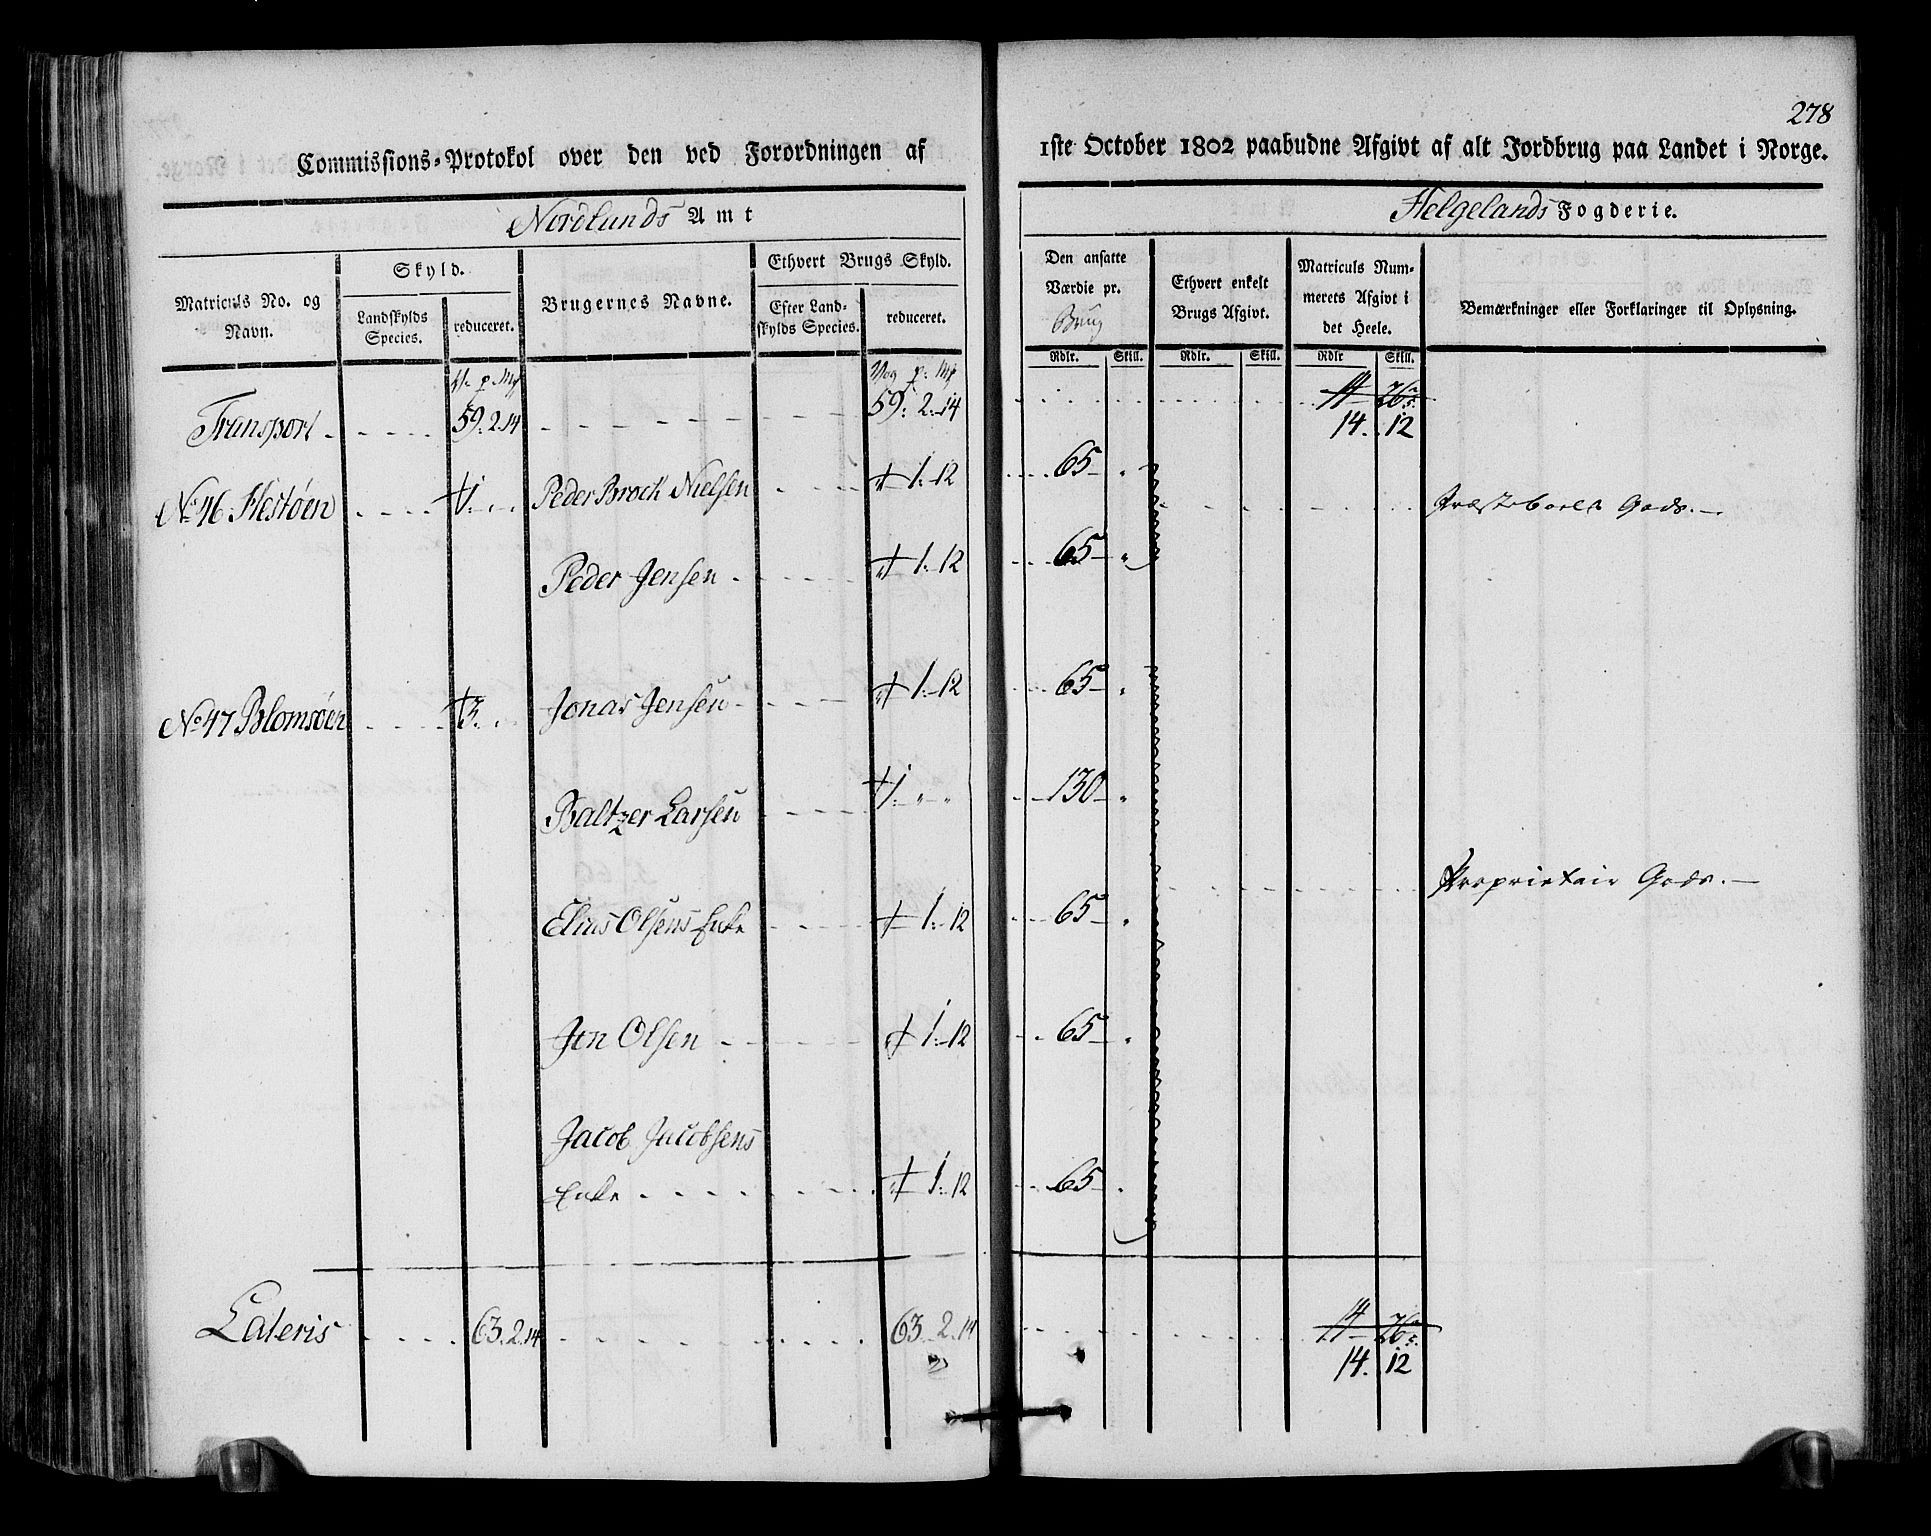 278
Commissions-Protokol over den ved Forordningen af
1ste October 1802 paabudne Afgivt af alt Jordbrug paa Landet i Norge.
Nordlands Amt
Helgelands Fogderie.
Matriculs No. og Navn.
Skyld.
Landskylds Species.
reduceret.
Brugernes Navne.
Ethvert Brugs Skyld.
Efter Landskylds Species.
reduceret.
Den ansatte Værdie pr. Brug
Rdlr. Skill.
Ethvert enkelt Brugs Afgivt.
Rdlr. Skill.
Matriculs Nummerets Afgivt i det Heele.
Rdlr Skill.
Bemærkninger eller Forklaringer til Oplysning.
V. p. Mk Vog p. Mk
Transport 59. 2. 14 59. 2. 14 14. 12
No 46 Hestøen 1. Peder Brock Nielsen 1. 12 65 Præsteboels Gods.
Peder Jensen 1. 12 65
No 47 Blomsøen 3. Jonas Jensen 1. 12 65
Baltzer Larsen 1. 130
Elias Olsens Enke 1. 12 65 Proprietair Gods.
Jon Olsen 1. 12 65
Jacob Jacobsens
Enke 1. 12 65
Lateris 63. 2. 14 63. 2. 14 14. 12